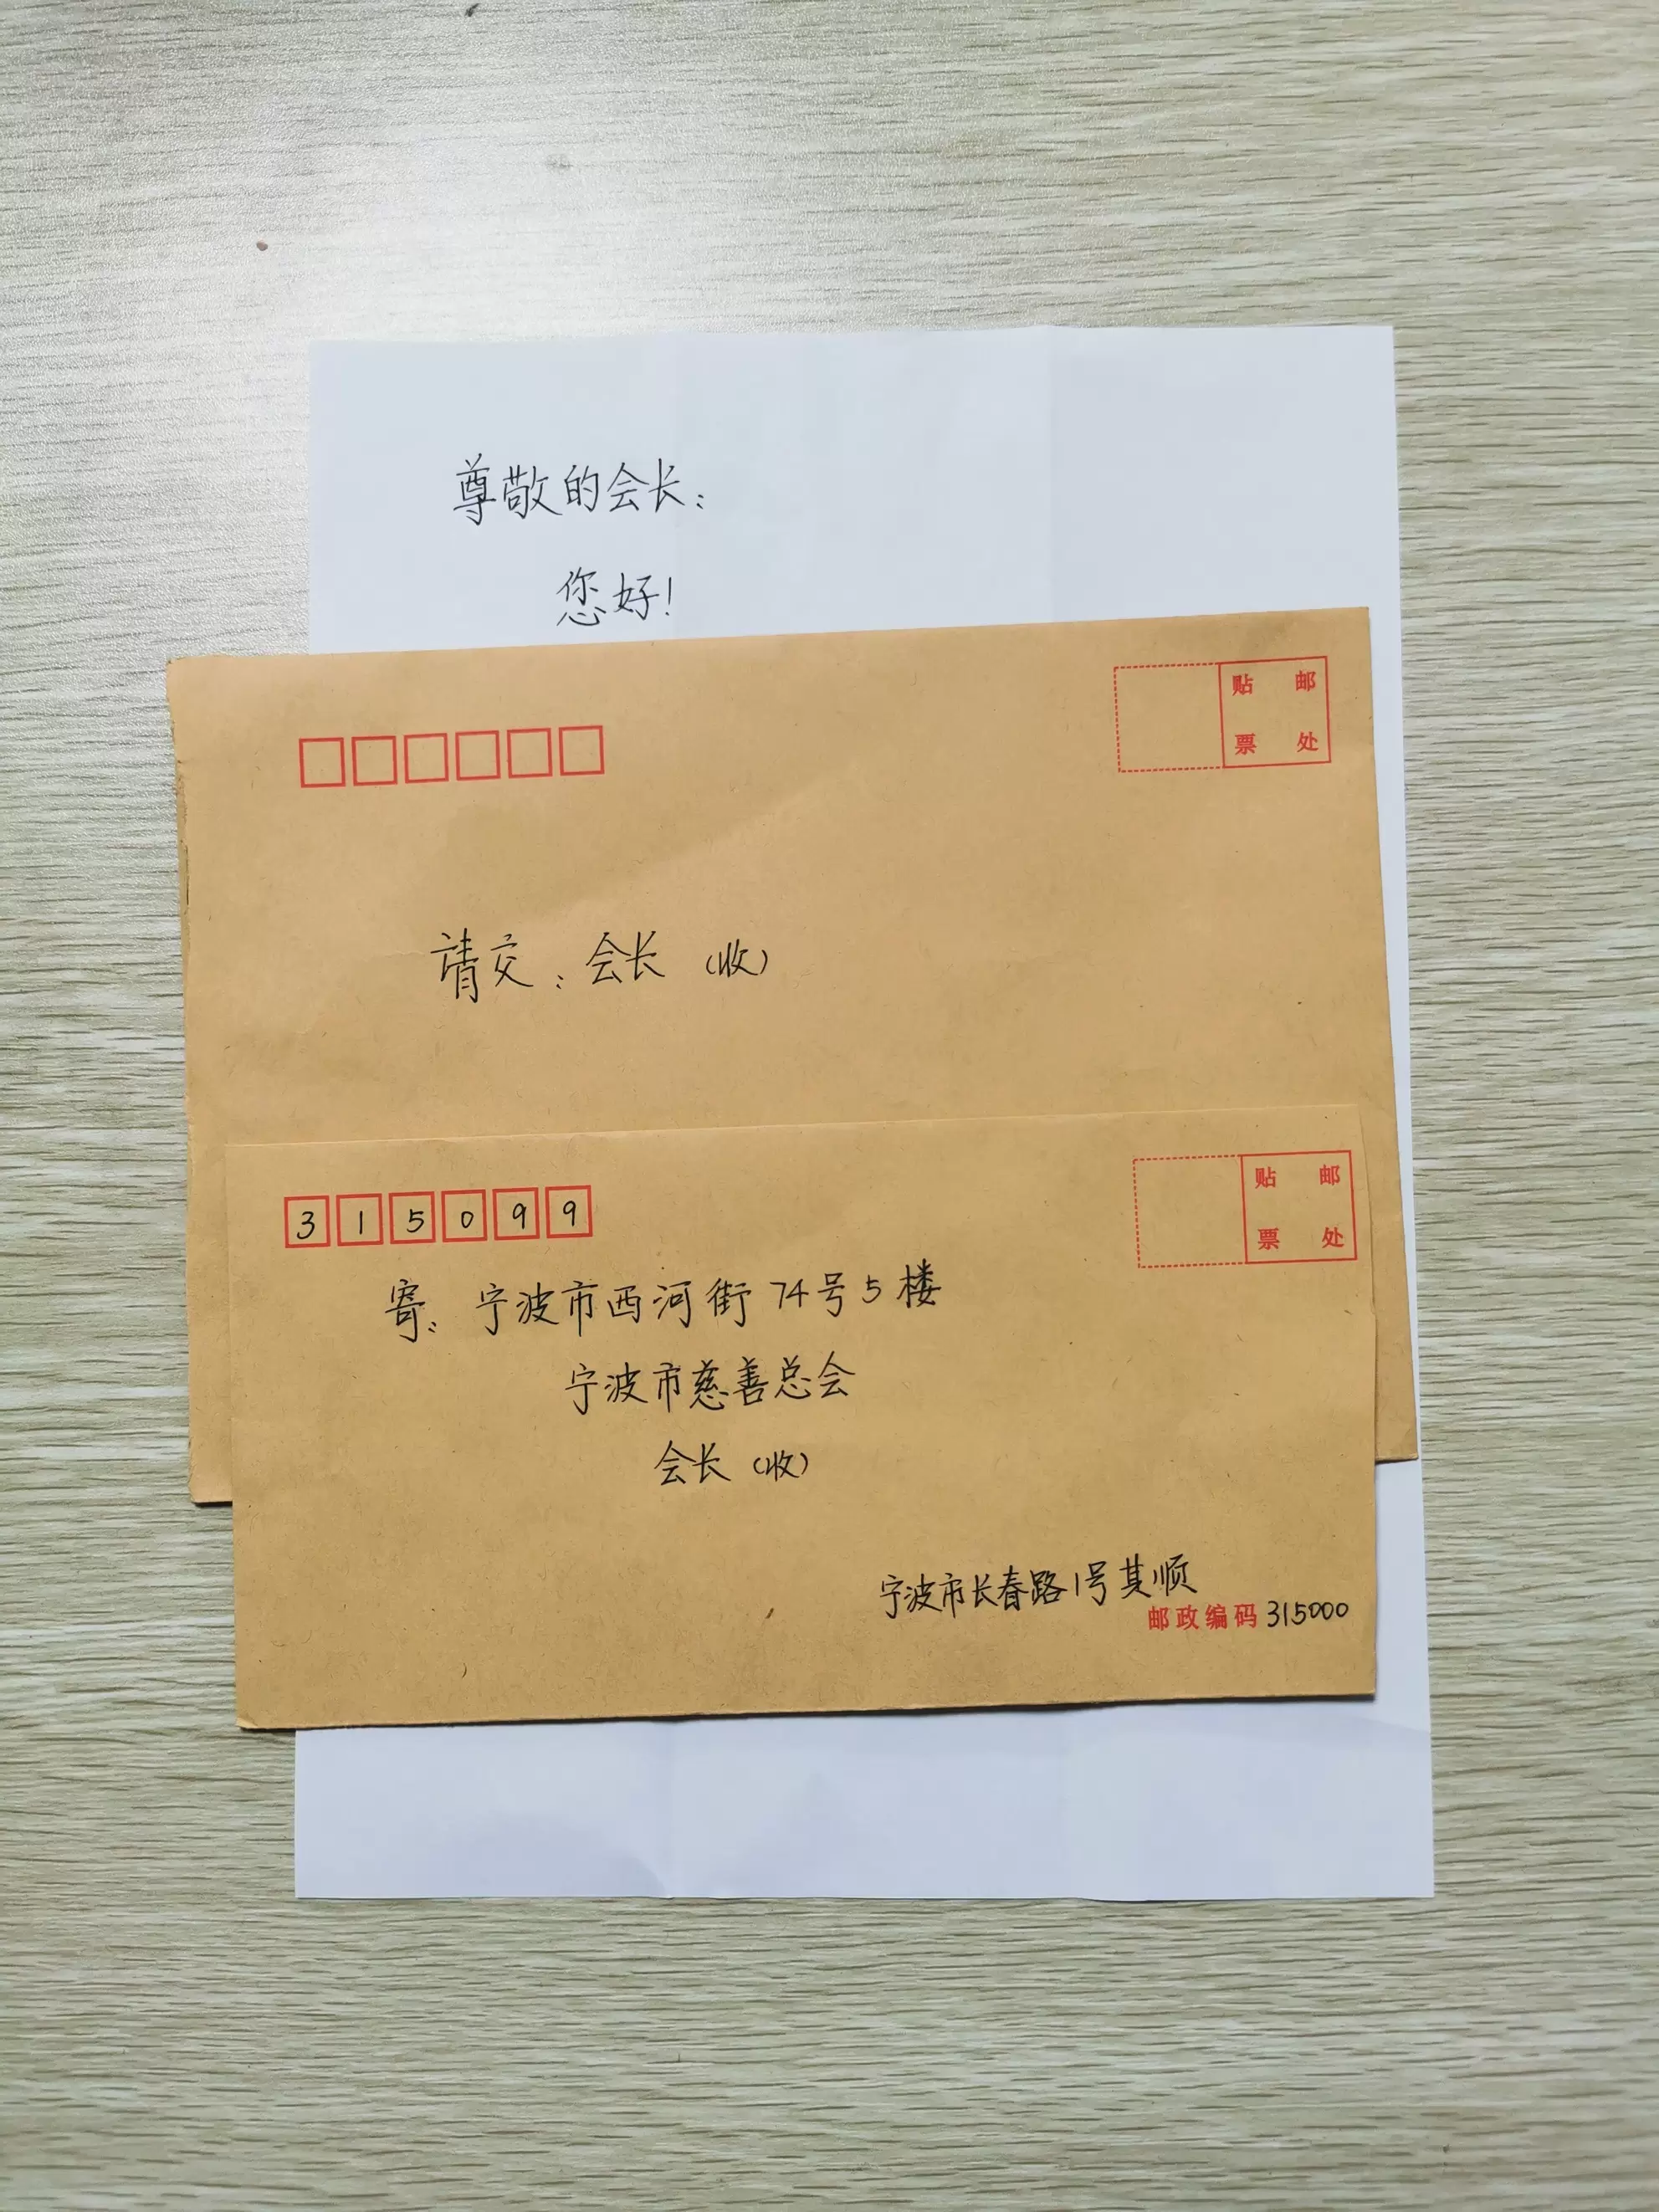 尊敬的会长：
您好！
贴 邮
票 处
请交：会长（收）
贴 邮
票 处
315099
寄：宁波市西河街74号5楼
宁波市慈善总会
会长（收）
宁波市长春路1号其顺
邮政编码 315000